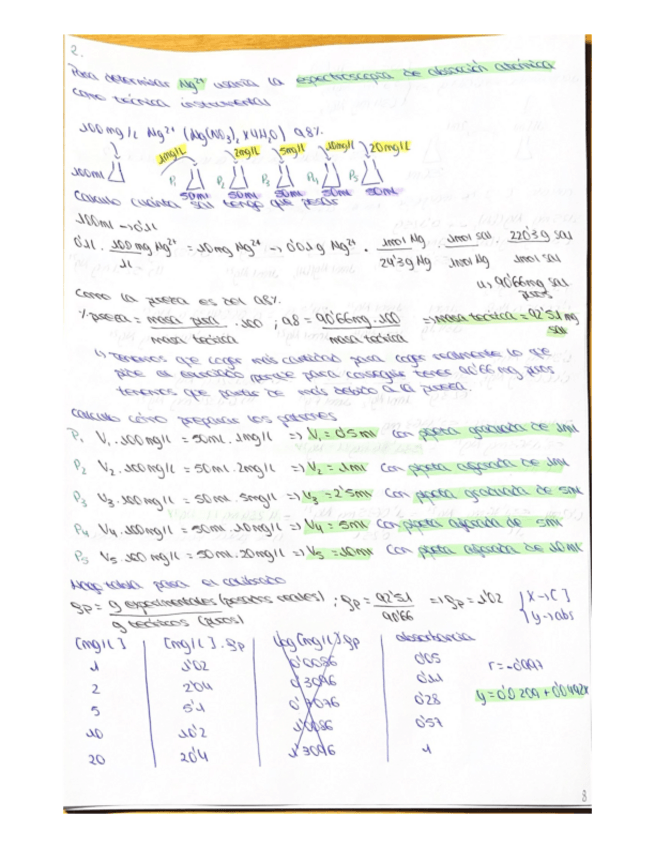 2.
Para determinar Mg²⁺ usaría la espectroscopía de absorción atómica
como técnica instrumental
100 mg/L Mg²⁺ (Mg(NO₃)₂ x4H₂O) 98%
1mg/L 2mg/L 5mg/L 10mg/L 20mg/L
100ml P₁ P₂ P₃ P₄ P₅
50ml 50ml 50ml 50ml 50ml
Calculo cuánta sal tengo que pesar
100ml → 0'1L
0'1L · 100 mg Mg²⁺ / 1L = 10mg Mg²⁺ → 0'01 g Mg²⁺ · 1mol Mg / 24'3g Mg · 1mol sal / 1mol Mg · 220'3 g sal / 1mol sal
↳ 90'66mg sal
puros
Como la pureza es del 98%
% pureza = masa pura / masa teórica · 100 ; 98 = 90'66mg · 100 / masa teórica => masa teórica = 92'51 mg
sal
↳ tenemos que coger más cantidad para coger realmente lo que
pide el ejercicio porque para conseguir tener 90'66 mg puros
tenemos que partir de más debido a la pureza.
Calculo cómo preparar los patrones
P₁ V₁ · 100mg/L = 50ml · 1mg/L => V₁ = 0'5ml Con pipeta graduada de 1ml
P₂ V₂ · 100mg/L = 50ml · 2mg/L => V₂ = 1ml Con pipeta aforada de 1ml
P₃ V₃ · 100mg/L = 50ml · 5mg/L => V₃ = 2'5ml Con pipeta graduada de 5ml
P₄ V₄ · 100mg/L = 50ml · 10mg/L => V₄ = 5ml Con pipeta aforada de 5ml
P₅ V₅ · 100 mg/L = 50ml · 20mg/L => V₅ = 10ml Con pipeta aforada de 10ml
Hago tabla para el calibrado
gp = g experimentales (pesados reales) / g teóricos (puros) ; gp = 92'51 / 90'66 => gp = 1'02 { X→[ ] y→abs
[mg/L] [mg/L]·gp log[mg/L]·gp absorbancia
1 1'02 0'0086 0'05
2 2'04 0'3096 0'11
5 5'1 0'7076 0'28
10 10'2 1'0086 0'57
20 20'4 1'3096 1
r = -0'997
y = 0'0209 + 0'0492x
8